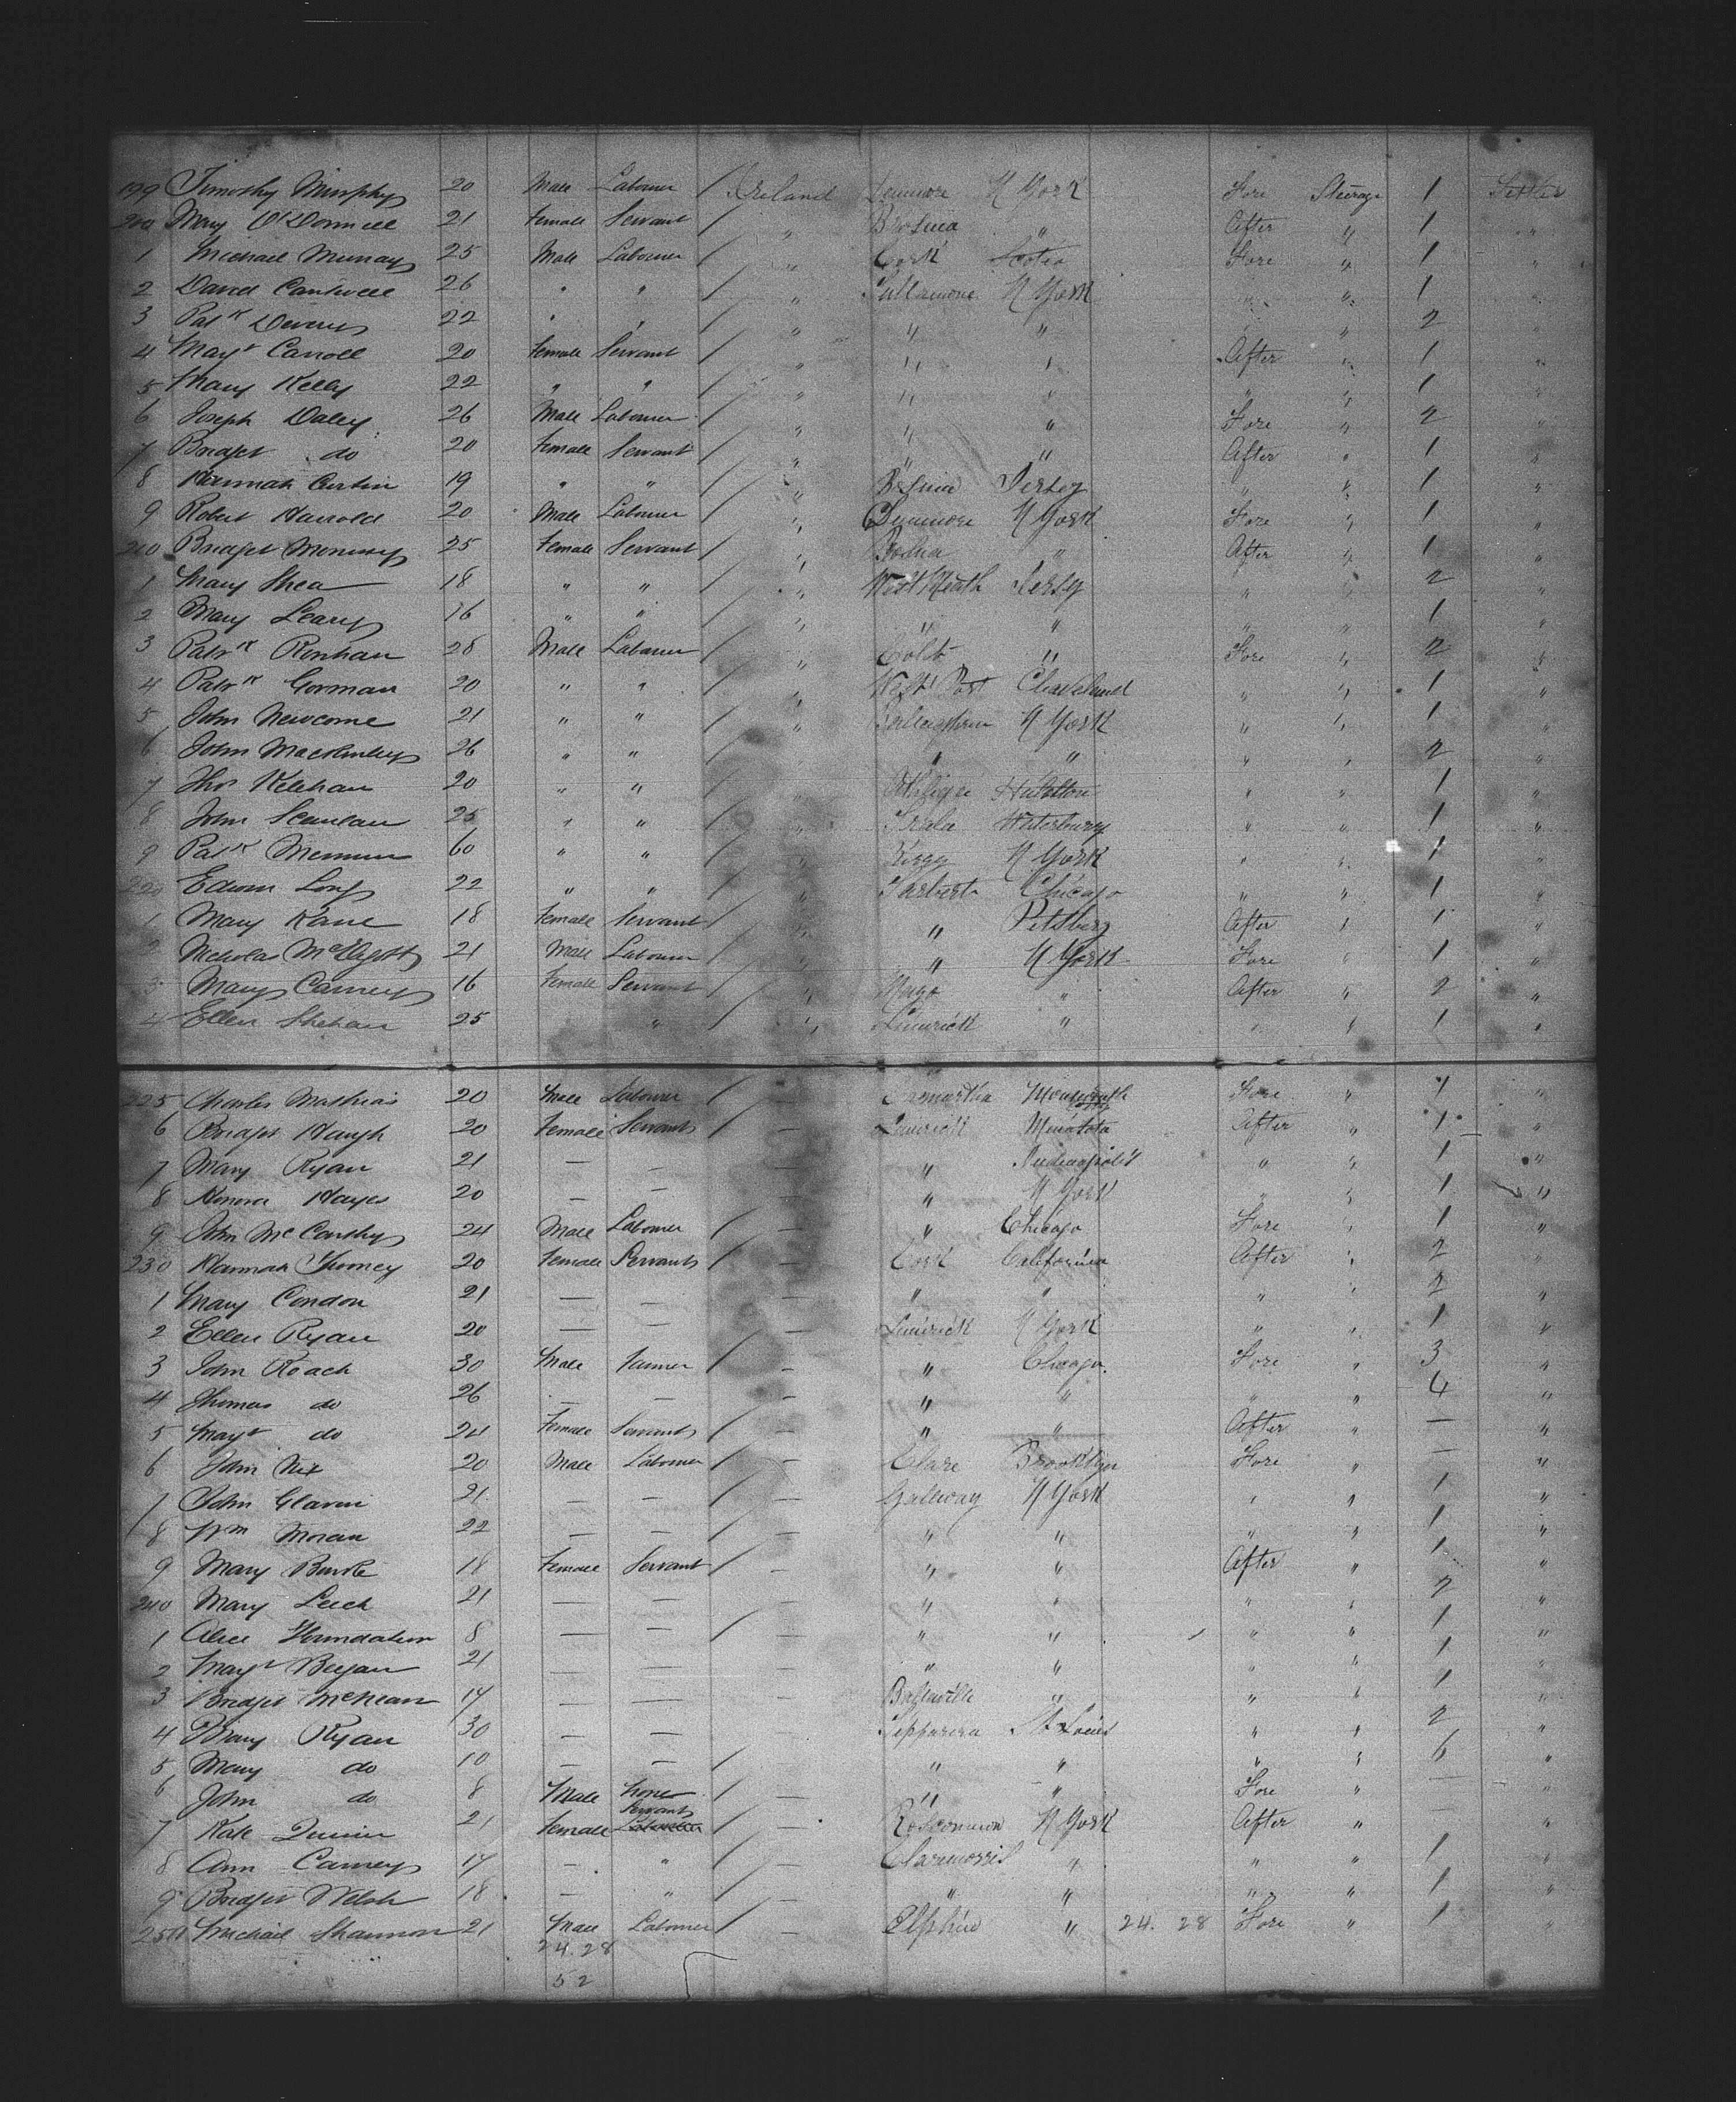 199 Timothy Murphy 20 Male Labourer / Ireland Dunmore N York Fore Steerage 1 Settler
200 Mary O'Donnell 21 Female Servant / " Brosna " After " 1 "
1 Michael Murray 25 Male Labourer / " Cork Fore " 1 "
2 David Cantwell 26 " " / " Tullamore N York " " 1 "
3 Patk Devery 22 " " / " " " " " 2 "
4 Mayt Carroll 20 Female Servant / " " " After " 1 "
5 Mary Kelly 22 " " / " " " " " 1 "
6 Joseph Daley 26 Male Labourer / " " " Fore " 2 "
7 Bridget do 20 Female Servant / " " " After " 1 "
8 Hannah Curtin 19 " " / " Jersey " " 1 "
9 Robert Harrold 20 Male Labourer / " Dunmore N York Fore " 1 "
210 Bridget 25 Female Servant / " " After " 1 "
1 Mary Shea 18 " " / " West Meath Jersey " " 2 "
2 Mary Leary 16 " " / " " " " " 1 "
3 Patrk Ronhan 28 Male Labourer / " " Fore " 2 "
4 Patrk Gorman 20 " " / " West Port Claveland " " 1 "
5 John Newcome 21 " " / " N York " " 1 "
6 John Mackinley 26 " " / " " " " " 2 "
7 Thos Kelehan 20 " " / " " " 1 "
8 John Scanlan 25 " " / " Waterbury " " 1 "
9 Patk 60 " " / " N York " " 1 "
220 Edwin Long 22 " " / " Tarbert Chicago " " 1 "
1 Mary Kane 18 Female Servant / " " Pittsburg After " 1 "
2 Nicholas 21 Male Labourer / " " N York Fore " 1 "
3 Mary Carney 16 Female Servant / " Mayo " After " 2 "
4 Ellen Shehan 25 " / " Limrick " " " 1 "
225 Charles Mathias 20 Male Labourer / — Monmouth Fore " 1 "
6 Bridget Haugh 20 Female Servant / — Limrick Minatota After " 1 "
7 Mary Ryan 21 — — / — " Indianapolis " " 1 "
8 Honora Hayes 20 — — / — " N York " " 1 "
9 John McCarthy 24 Male Labourer / — " Chicago Fore " 1 "
230 Hannah 20 Female Servant / — Cork California After " 2 "
1 Mary Condon 21 — — / — " " " " 2 "
2 Ellen Ryan 20 — — / — Limrick N York " " 1 "
3 John Roach 30 Male Farmer / — " Chicago Fore " 3 "
4 Thomas do 26 — — / — " " " " 4 "
5 Mayt do 24 Female Servant / — " " After " — "
6 John Nix 20 Male Labourer / — Clare Brooklyn Fore " — "
7 John Glavin 21 — — / — Gallway N York " " 1 "
8 Wm Moran 22 — — / — " " " " 1 "
9 Mary Burke 18 Female Servant / — " " After " 1 "
240 Mary Leech 21 — — — " " " " 2 "
1 Alice 8 — — / — " " " " 1 "
2 Mayt Began 21 — — — " " " " 1 "
3 Bridget McKean 17 — — — " " " 1 "
4 Mary Ryan 30 — — St Louis " " 2 "
5 Mary do 10 — — / — " " " " 6 "
6 John do 8 Male None / — " " Fore " — "
7 Kate Quinn 21 Female Servant / — Roscommon N York After " — "
8 Ann Carney 17 — " / — Claremorris " " " 1 "
9 Bridget Welsh 18 — " / — " " " " 1 "
250 Michael Shannon 21 Male Labourer / — Elphin " 24. 28 Fore " 1 "
24. 28
52